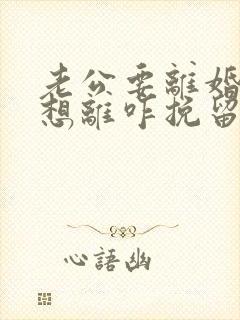 老公要離婚
想離咋挽留
心語幽